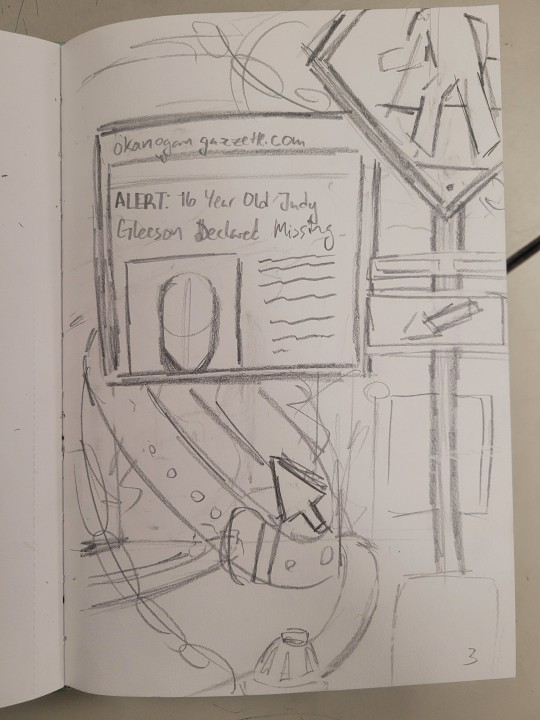 okanogan gazzette.com
ALERT: 16 Year Old Judy
Gleeson Declared Missing
3